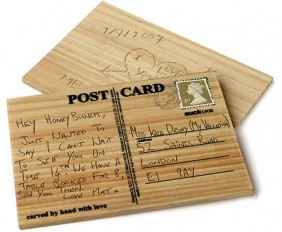 1/9/2007
I
LOVE
ME
POST CARD
suck uk
HEY HONEY BUNCH,
JUST WANTED TO
SAY I CAN'T WAIT
TO SEE YOU ON
THE 14TH. WE HAVE A
TABLE BOOKED FOR 8,
SEE YOU THEN. LOVE MAT X
MISS LARA DEWEY (MY VALENTINE)
52 SAINTS ROAD
LONDON
E1 9AY
carved by hand with love